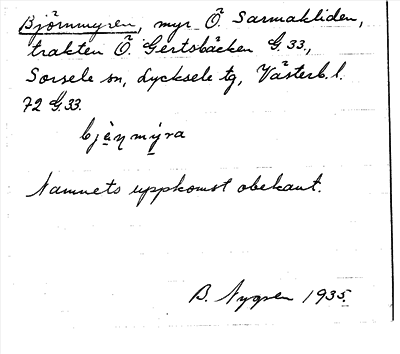 Björnmyren, myr Ö Sarmakliden,
trakten Ö. Gertsbäcken G. 33.,
Sorsele sn, Lycksele tg, Västerb. l.
72 G 33.
bjà̤ŋmy̤ra
Namnets uppkomst obekant.
B. Nygren 1935.